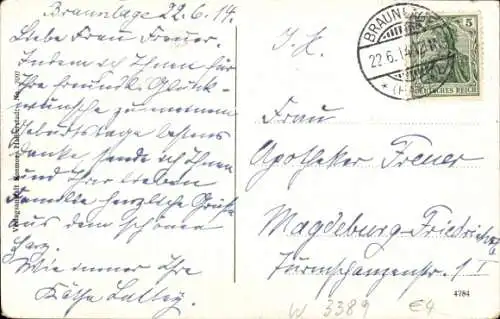 Braunlage 22.6.14.
Liebe Frau Freuer.
Indem ich Ihnen für
Ihre freundl. Glück-
wünsche zu meinem
Geburtstage bestens
danke, sende ich Ihnen
und Ihrer lieben
Familie herzliche Grüße
aus dem schönen
Harz.
Wie immer Ihre
Käthe
Frau
Apotheker Freuer
Magdeburg-Friedrichst.
Turmschanzenstr. 1 I
BRAUNLAGE
22.6.14
5
DEUTSCHES REICH
4784
W 3389 €4